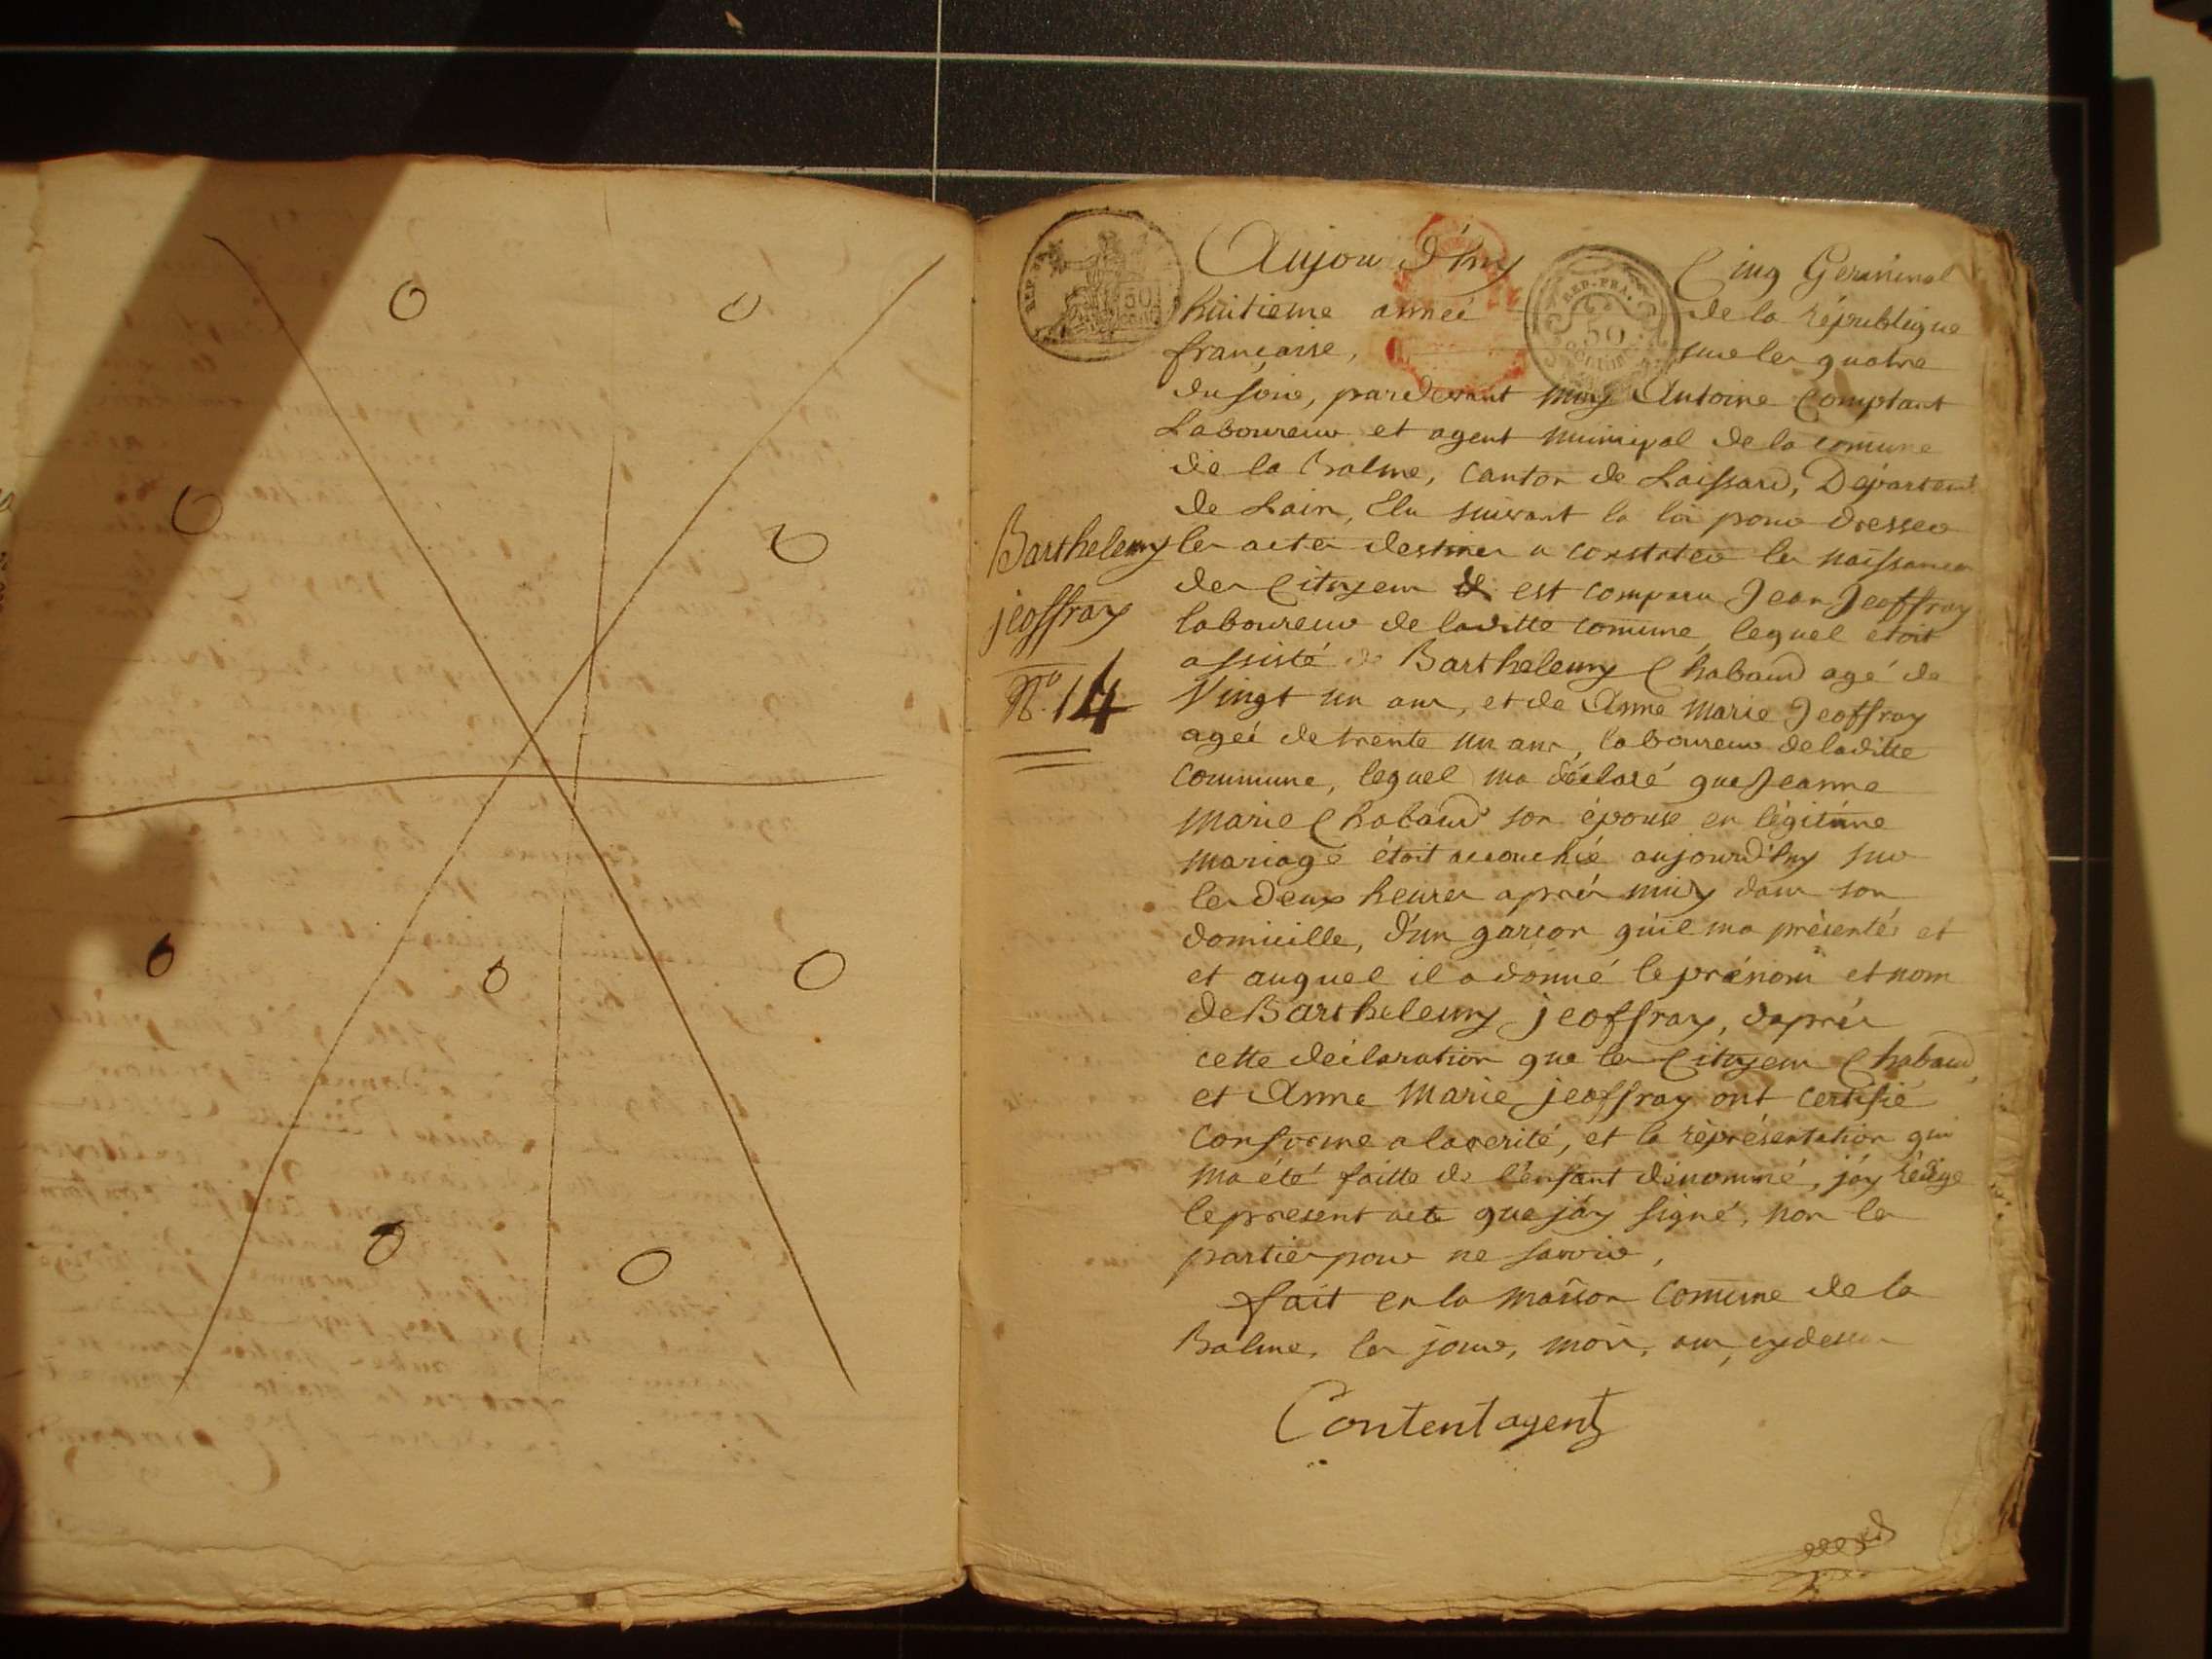 REP. FRA.
50
CENT
REP. FRA.
50
CENTIMES
Aujourd'huy Cinq Germinal
huitieme année de la république
française, sur les quatre
du soir, pardevant moy Antoine Comptant
Laboureur et agent municipal de la comune
de la Balme, canton de Laissard, Départemt
de Lain, Elu suivant la loi pour dresser
les actes destinés a constater les naissances
des Citoyens est comparu Jean Jeoffray
laboureur de laditte comune, lequel etoit
assisté de Barthelemy Chabaud agé de
Vingt un ans, et de Anne Marie Jeoffray
ageé de trente un ans, laboureurs de laditte
commune, lequel ma déclaré que Jeanne
Marie Chabaud son épouse en légitime
mariage étoit accouchée aujourd'huy sur
les deux heures après midy dans son
domicille, d'un garçon qu'il ma présentés et
et auquel il a donné le prénom et nom
de Barthelemy jeoffray, daprès
cette déclaration que les Citoyens Chabaud,
et Anne Marie jeoffray ont certifié
conforme a la verité, et la représentation qui
ma été faitte de l'enfant dénommé, j'ay rédigé
le present acte que j'ay signé, non les
parties pour ne savoir,
fait en la maison comune de la
Balme, les jour, mois, ans, cydessus
Content agent
Barthelemy
jeoffray
No. 14